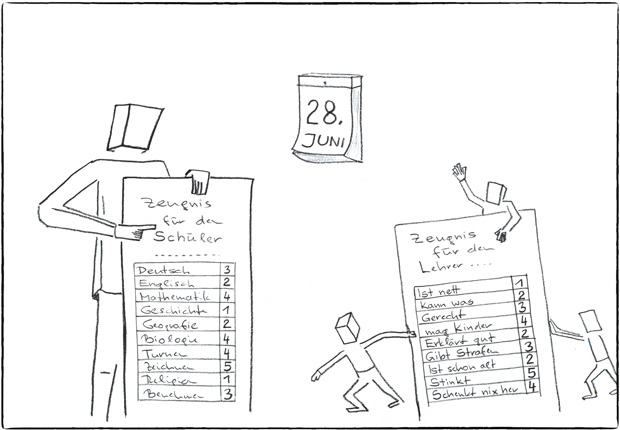 28.
JUNI
Zeugnis
für den
Schüler
..........
Deutsch 3
Englisch 2
Mathematik 4
Geschichte 1
Geografie 2
Biologie 4
Turnen 4
Zeichnen 5
Religion 1
Benehmen 3
Zeugnis
für den
Lehrer ....
Ist nett 1
Kann was 2
Gerecht 3
mag Kinder 4
Erklärt gut 2
Gibt Strafen 3
Ist schon alt 2
Stinkt 5
Schenkt nix her 4